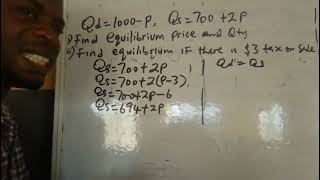 Qd = 1000 - P, Qs = 700 + 2P
i) Find equilibrium price and Qty
ii) Find equilibrium IF there is $3 tax on Sale
Qs = 700 + 2P
Qs = 700 + 2(P - 3)
Qs = 700 + 2P - 6
Qs = 694 + 2P
Qd = Qs